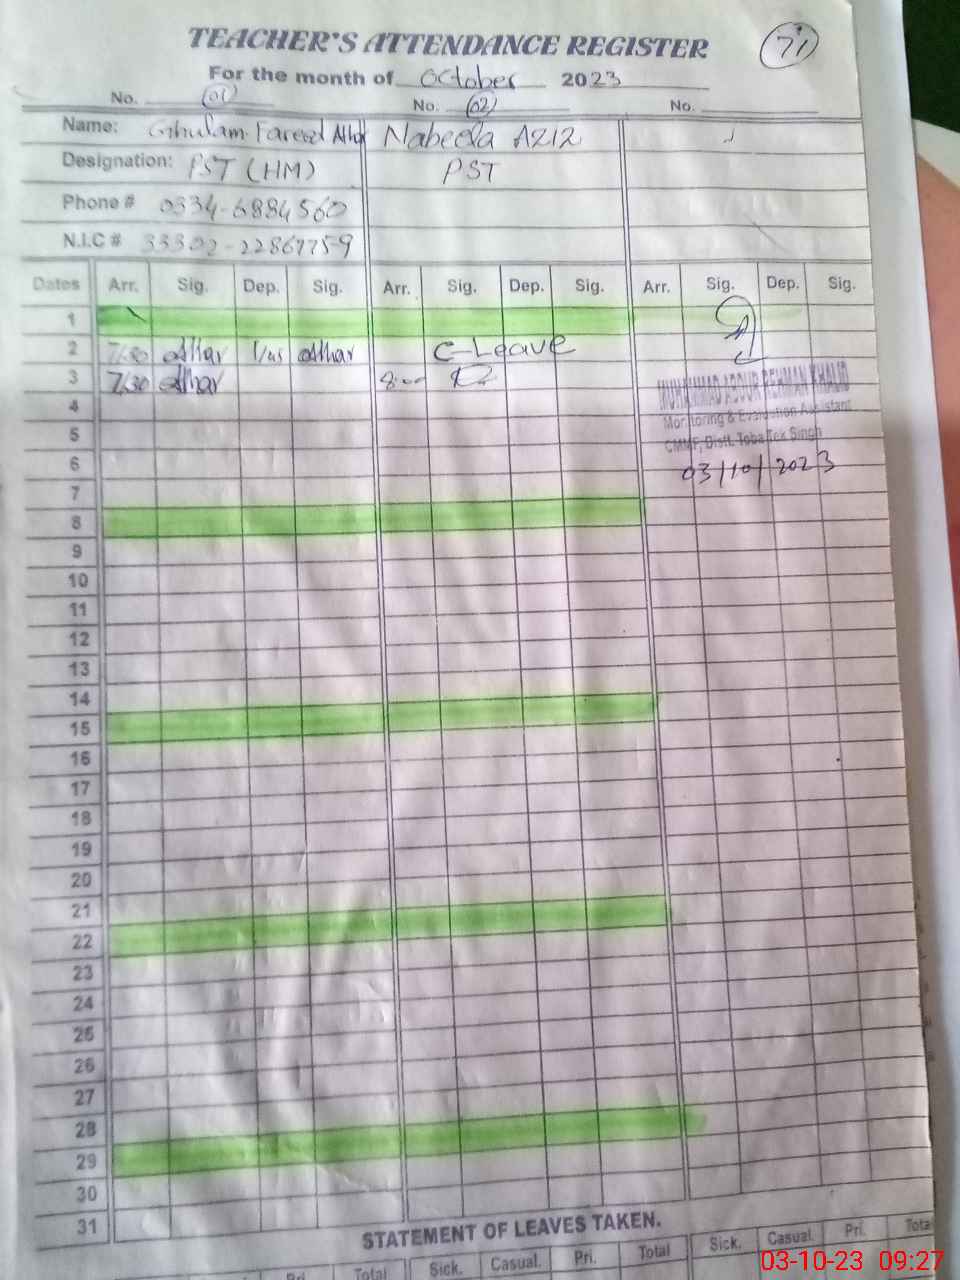 TEACHER'S ATTENDANCE REGISTER
71
For the month of October 2023
No. 01 No. 02 No.
Name: Ghulam Fareed Athar Nabeela Aziz
Designation: PST (HM) PST
Phone # 0334-6884560
N.I.C # 33302-22867759
Dates Arr. Sig. Dep. Sig. Arr. Sig. Dep. Sig. Arr. Sig. Dep. Sig.
1
2 7/30 Athar 1/45 Athar C-Leave
3 7/30 Athar 8:00
MUHAMMAD ABDUR REHMAN KHALID
4
Monitoring & Evaluation Assistant
5
CMMF, Distt. Toba Tek Singh
6
03/10/2023
7
8
9
10
11
12
13
14
15
16
17
18
19
20
21
22
23
24
25
26
27
28
29
30
31
STATEMENT OF LEAVES TAKEN.
Pri. Total Sick. Casual. Pri. Total Sick. Casual. Pri. Total
03-10-23 09:27